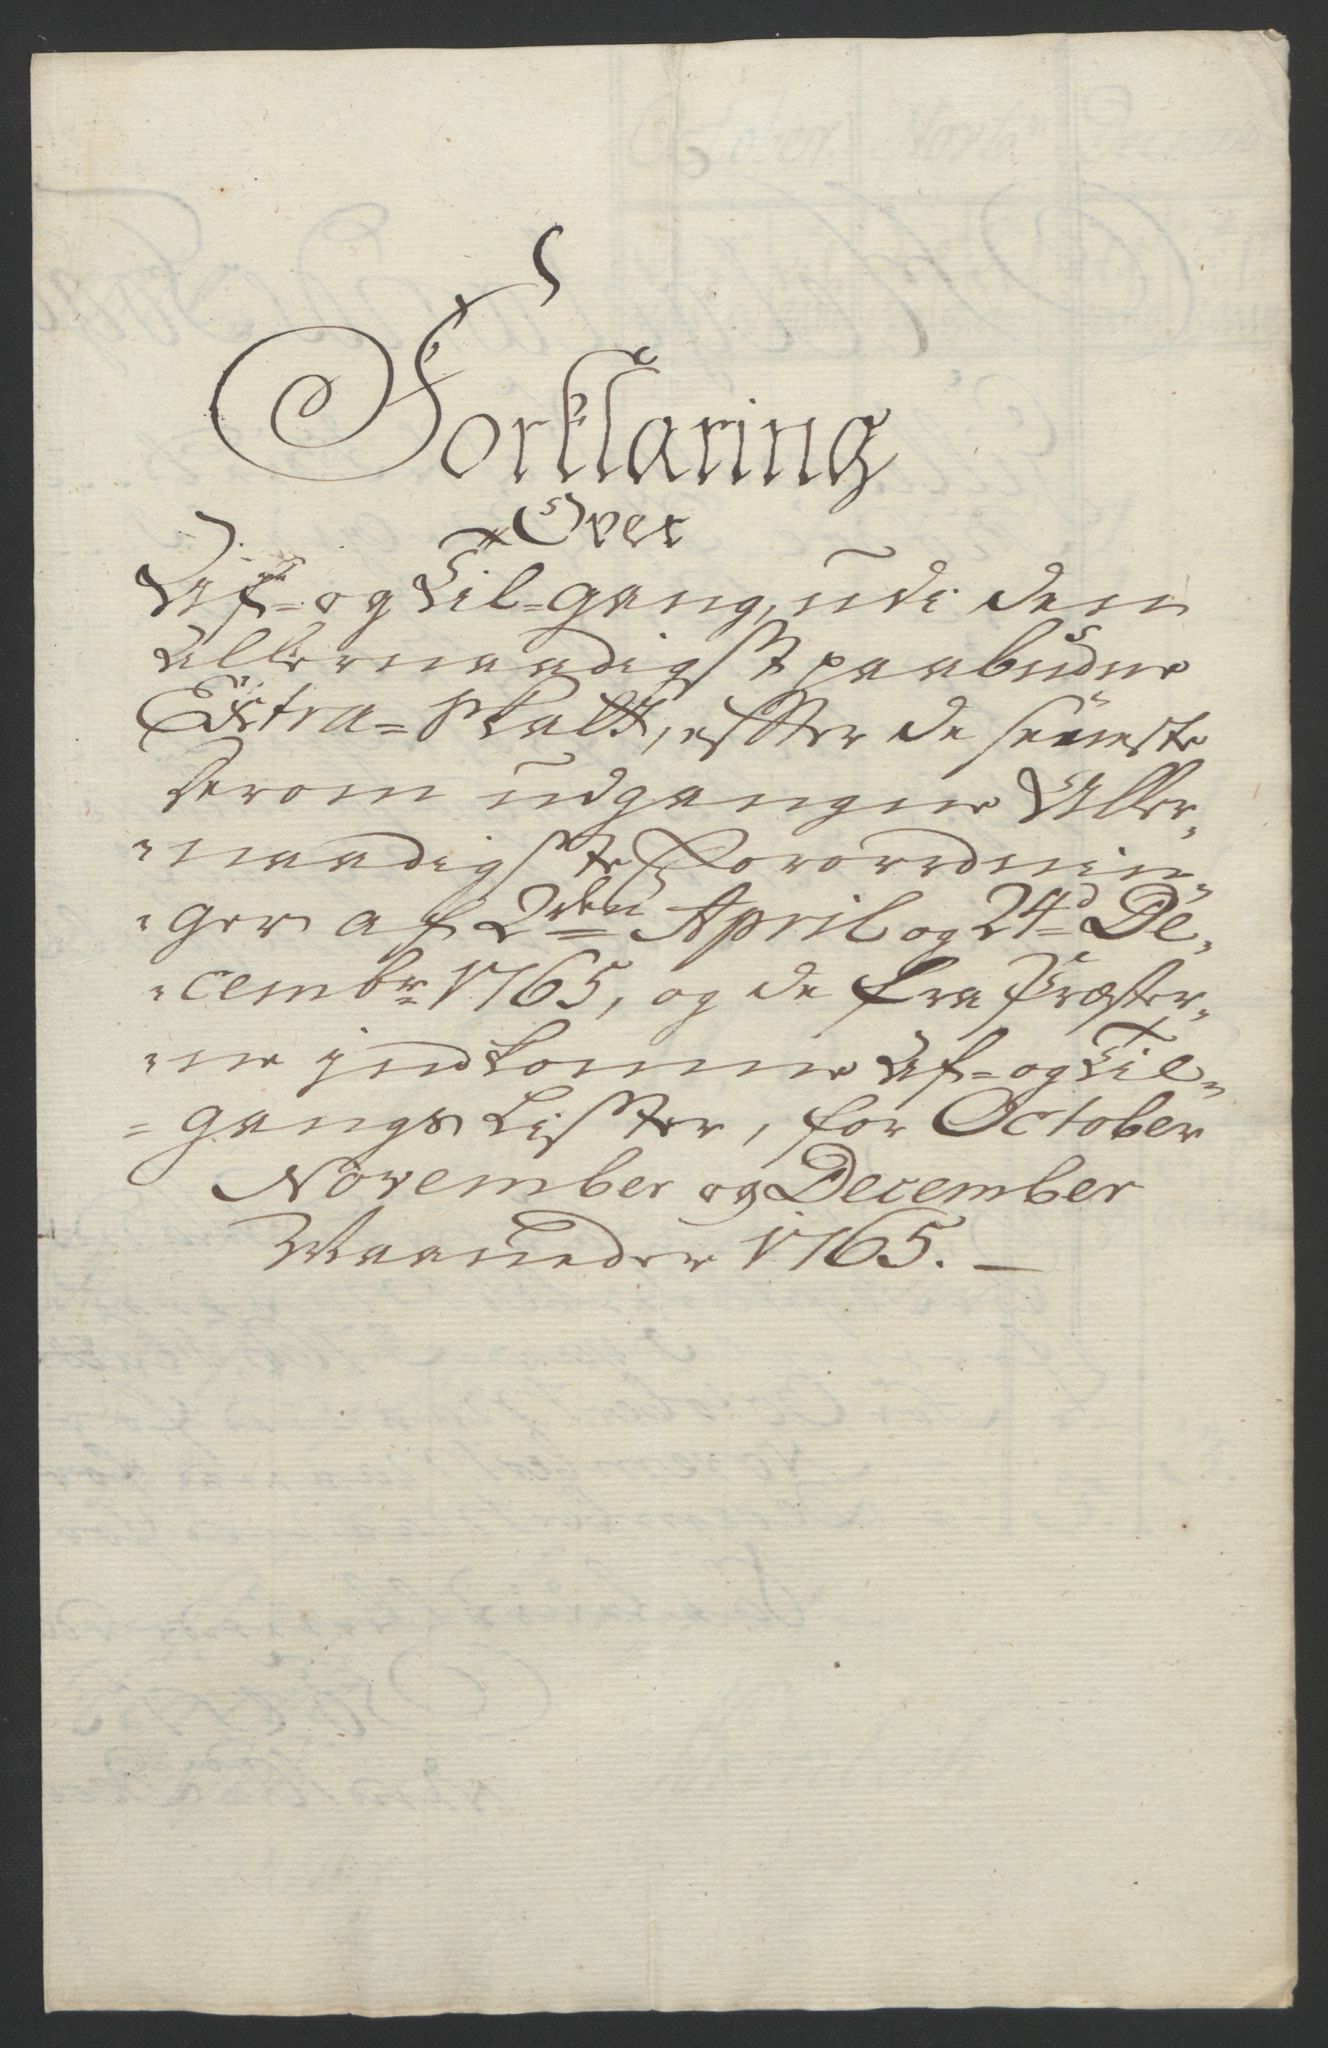 Forklaring
Over
Af- og Til-gang, udi den
allernaadigst paabudne
Extra-Skatt, effter de seneste
derom udgangne Aller-
-naadigste Forordnin-
-ger af 2den April og 24d De-
-cembr 1765, og de fra Præster-
-ne indkomne Af- og Til-
-gangs Lister, for October
November og December
Maaneder 1765. -